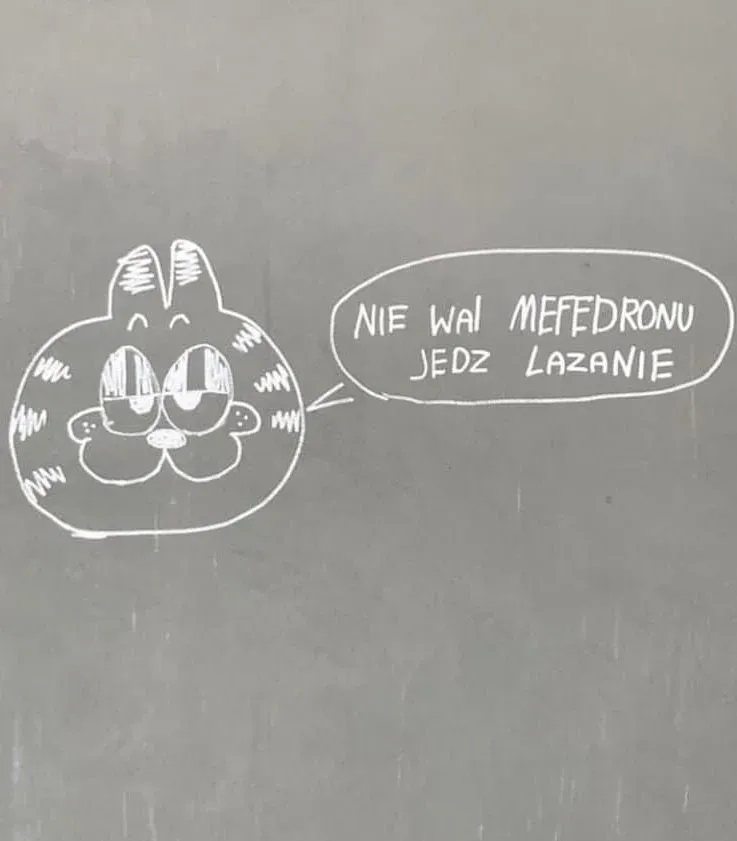 NIE WAl MEFEDRONU
JEDZ LAZANIE